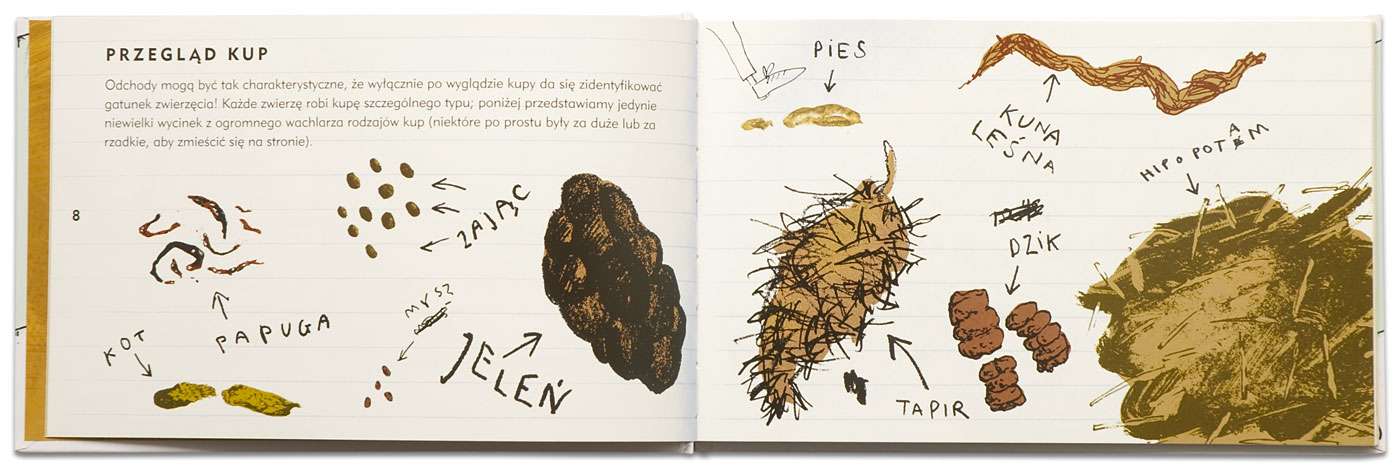 PRZEGLĄD KUP
Odchody mogą być tak charakterystyczne, że wyłącznie po wyglądzie kupy da się zidentyfikować
gatunek zwierzęcia! Każde zwierzę robi kupę szczególnego typu; poniżej przedstawiamy jedynie
niewielki wycinek z ogromnego wachlarza rodzajów kup (niektóre po prostu były za duże lub za
rzadkie, aby zmieścić się na stronie).
8
ZAJĄC
PAPUGA
MYSZ
KOT
JELEŃ
PIES
KUNA
LEŚNA
HIPOPOTAM
DZIK
TAPIR